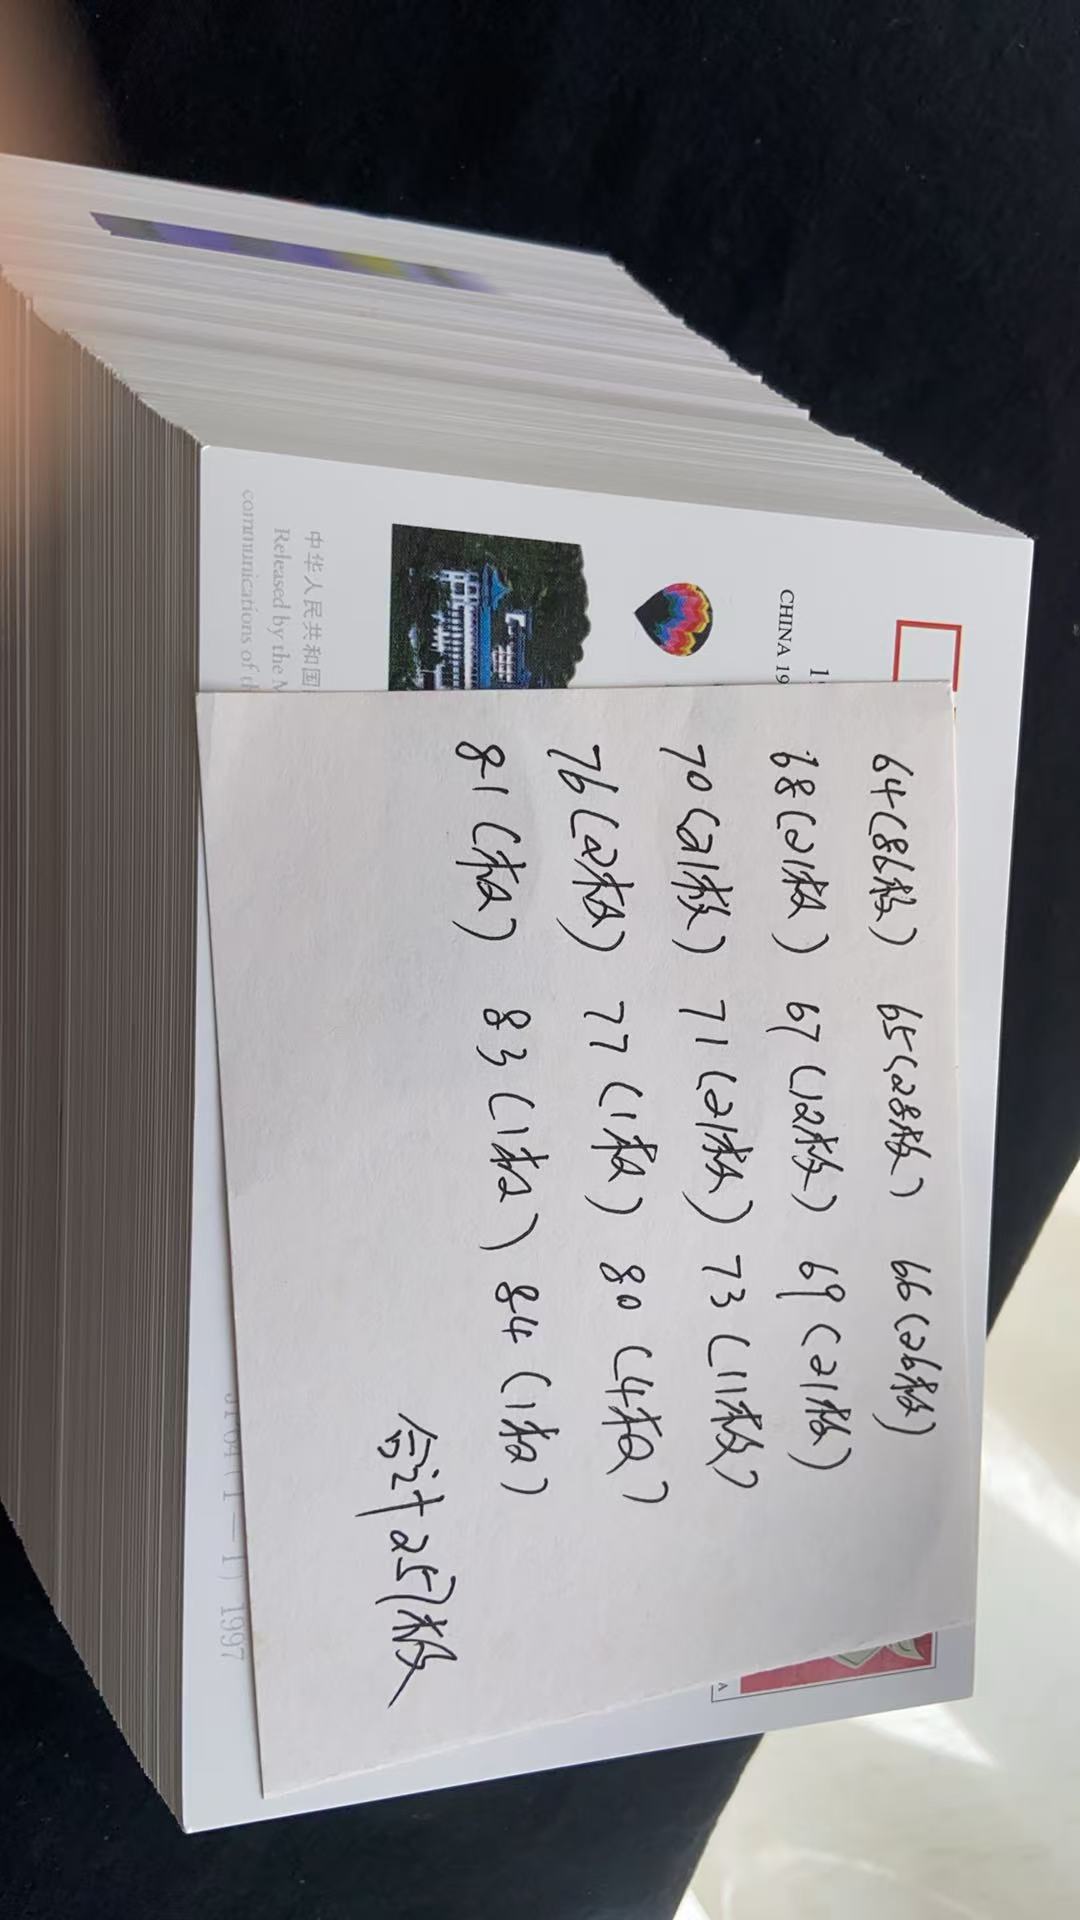 64(86枚) 65(28枚) 66(26枚)
68(21枚) 67(12枚) 69(21枚)
70(21枚) 71(21枚) 73(11枚)
76(2枚) 77(1枚) 80(4枚)
81(枚) 83(1枚) 84(1枚)
合计257枚
CHINA 19
中华人民共和国
Released by the M
communications of
1997